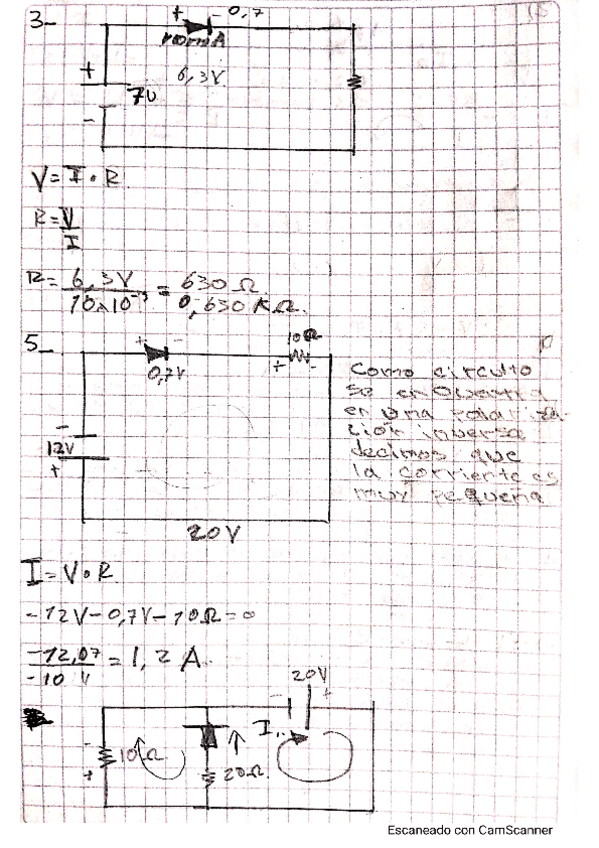 3-
+ - 0,7
6,3V
+
7V
-
V = I • R
R = V
I
R = 6,3V = 630 Ω
10x10⁻³ 0,630 KΩ.
5-
+ - 10Ω
0,7V + -
Como circuito
se encuentra
en una polariza-
ción inversa
decimos que
la corriente es
muy pequeña
-
12V
+
20V
I = V • R
-12V - 0,7V - 10Ω = 0
-12,07 = 1,2 A.
-10
20V
- +
I
- 10Ω
+ 20Ω.
Escaneado con CamScanner